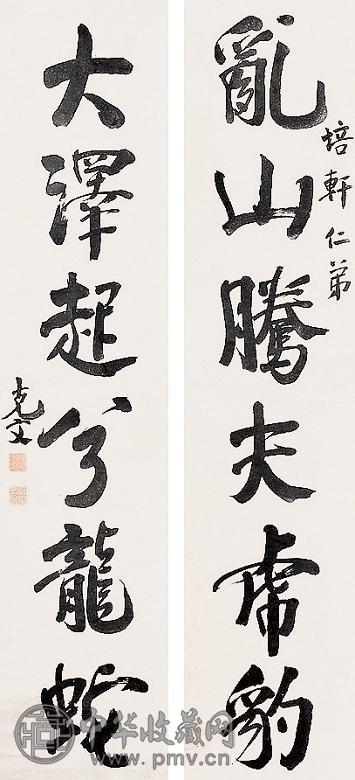 亂山騰夫虎豹
培軒仁弟
大澤起兮龍蛇
克文
中华收藏网
www.pmv.cn